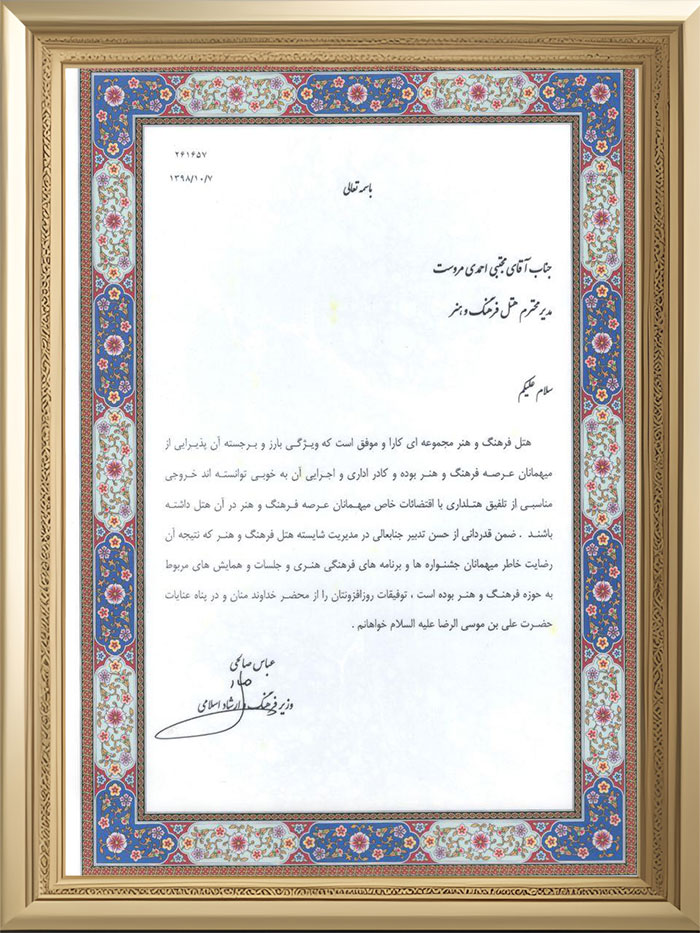 ۲۶۱۶۵۷
۱۳۹۸/۱۰/۷
باسمه تعالی
جناب آقای مجتبی احمدی مروست
مدیر محترم هتل فرهنگ و هنر
سلام علیکم
هتل فرهنگ و هنر مجموعه ای کارا و موفق است که ویژگی بارز و برجسته آن پذیرایی از
میهمانان عرصه فرهنگ و هنر بوده و کادر اداری و اجرایی آن به خوبی توانسته اند خروجی
مناسبی از تلفیق هتلداری با اقتضائات خاص میهمانان عرصه فرهنگ و هنر در آن هتل داشته
باشند . ضمن قدردانی از حسن تدبیر جنابعالی در مدیریت شایسته هتل فرهنگ و هنر که نتیجه آن
رضایت خاطر میهمانان جشنواره ها و برنامه های فرهنگی هنری و جلسات و همایش های مربوط
به حوزه فرهنگ و هنر بوده است ، توفیقات روزافزونتان را از محضر خداوند منان و در پناه عنایات
حضرت علی بن موسی الرضا علیه السلام خواهانم .
عباس صالحی
وزیر فرهنگ و ارشاد اسلامی